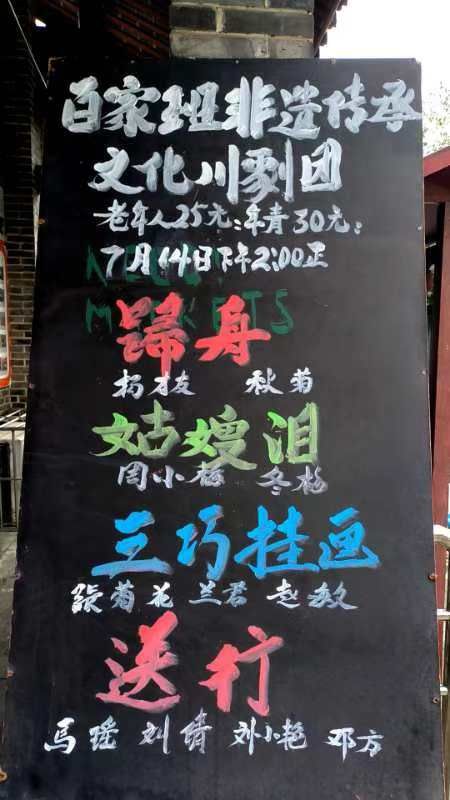 百家班非遗传承
文化川剧团
老年人25元:年青30元:
7月14日下午2:00正
NEEDLE
MARKETS
踏舟
杨才友 秋菊
姑嫂泪
周小梅 冬梅
三巧挂画
张菊花 兰君 赵敏
送行
馬瑶 刘倩 刘小艳 邓方